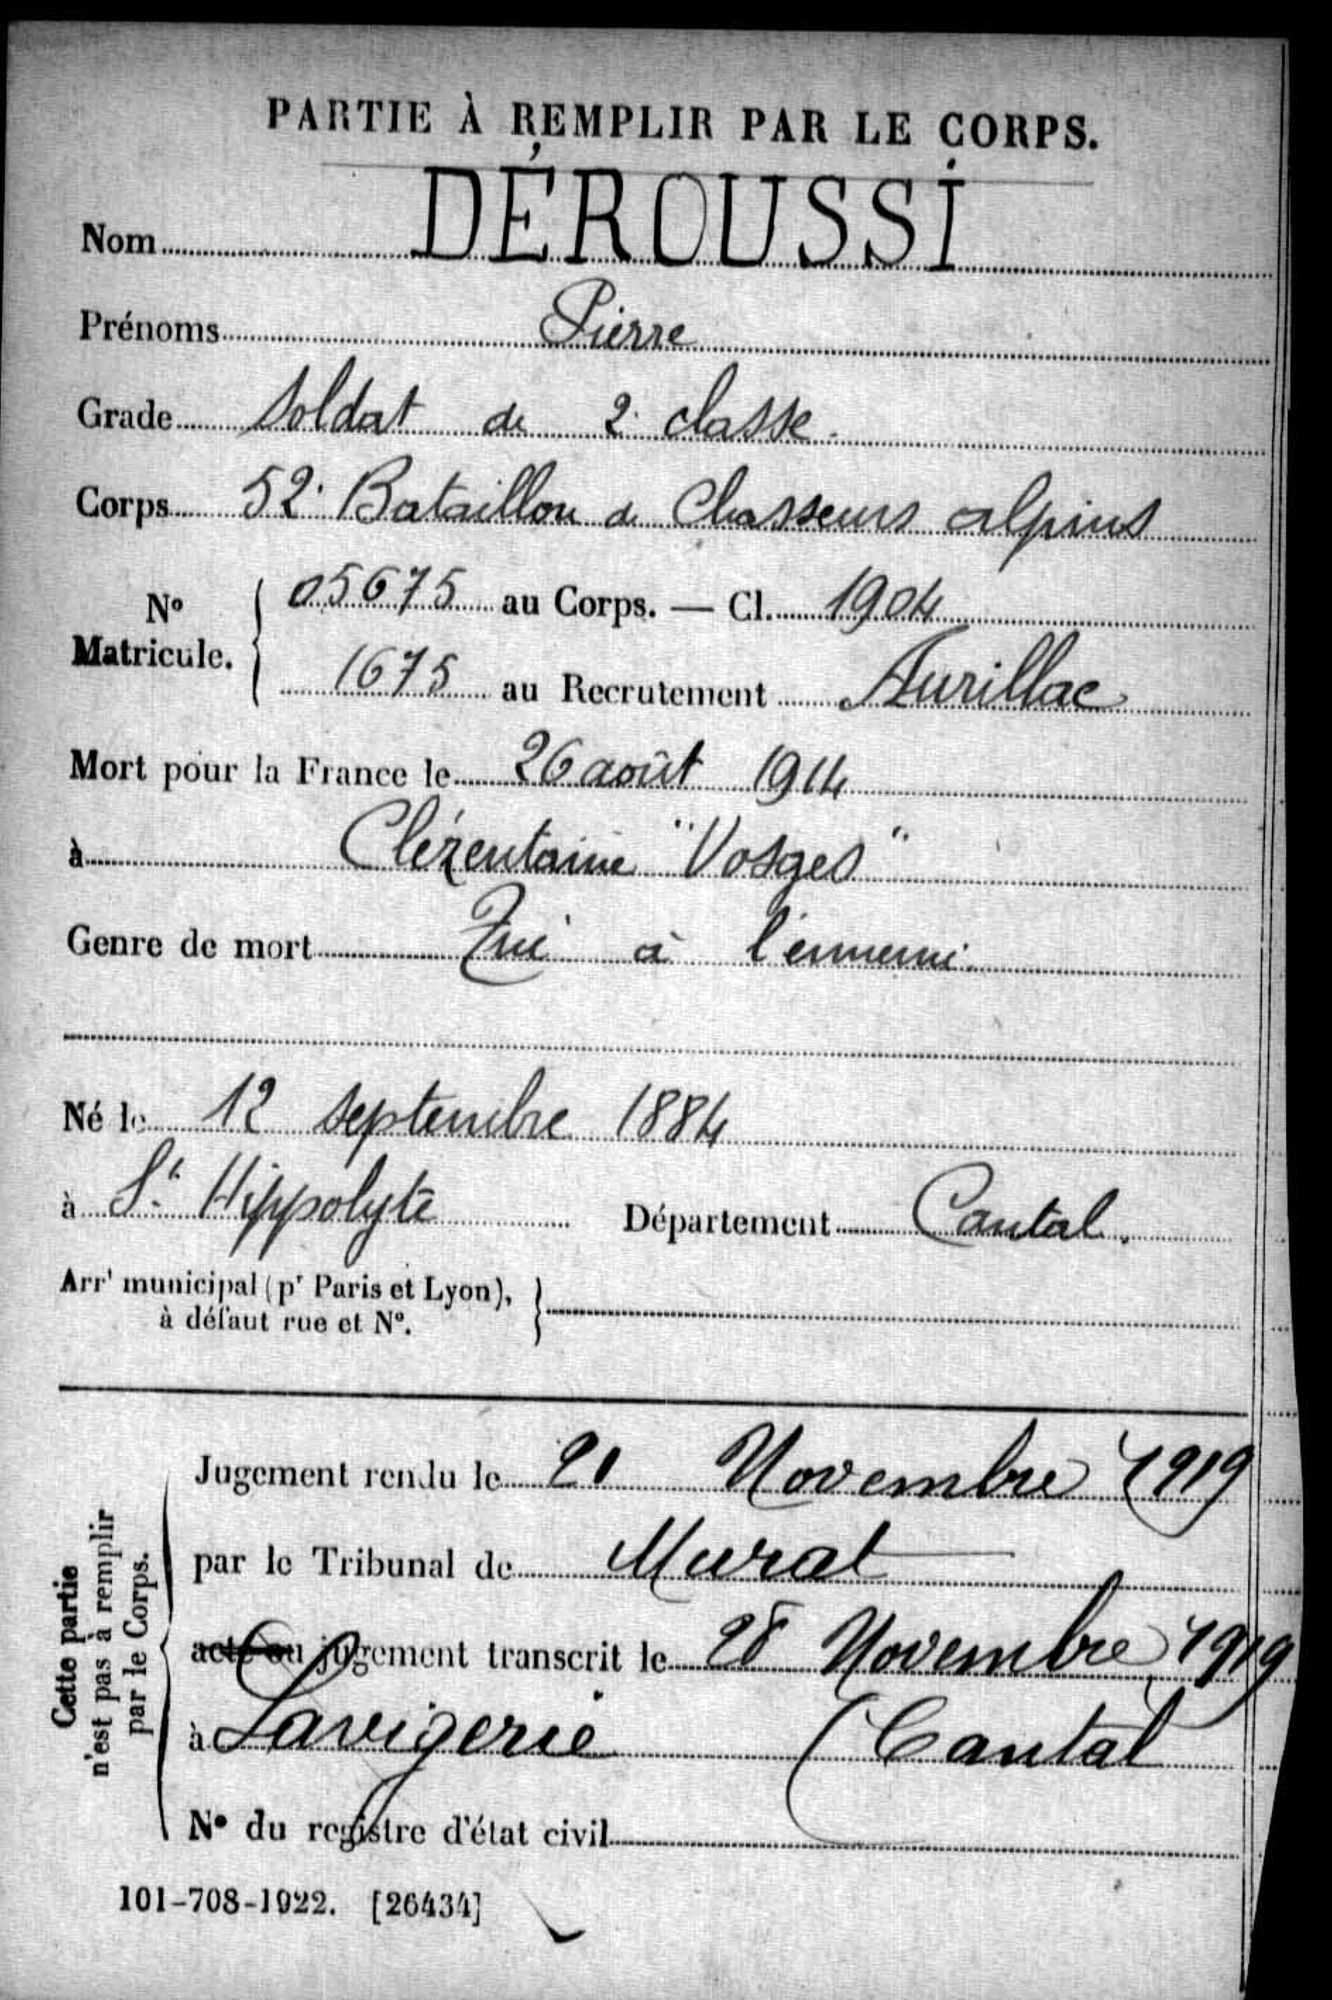 PARTIE À REMPLIR PAR LE CORPS.
Nom DÉROUSSI
Prénoms Pierre
Grade Soldat de 2e classe.
Corps 52e Bataillon de Chasseurs alpins
No Matricule. { 05675 au Corps. — Cl. 1904
1675 au Recrutement Aurillac
Mort pour la France le 26 août 1914
à Clézentaine "Vosges"
Genre de mort Tué à l'ennemi.
Né le 12 septembre 1884
à St Hippolyte Département Cantal.
Arrt municipal (pr Paris et Lyon), }
à défaut rue et No.
Cette partie
n'est pas à remplir
par le Corps.
Jugement rendu le 21 Novembre 1919
par le Tribunal de Murat
acte ou jugement transcrit le 28 Novembre 1919
à Lavigerie (Cantal
No du registre d'état civil
101-708-1922. [26434]